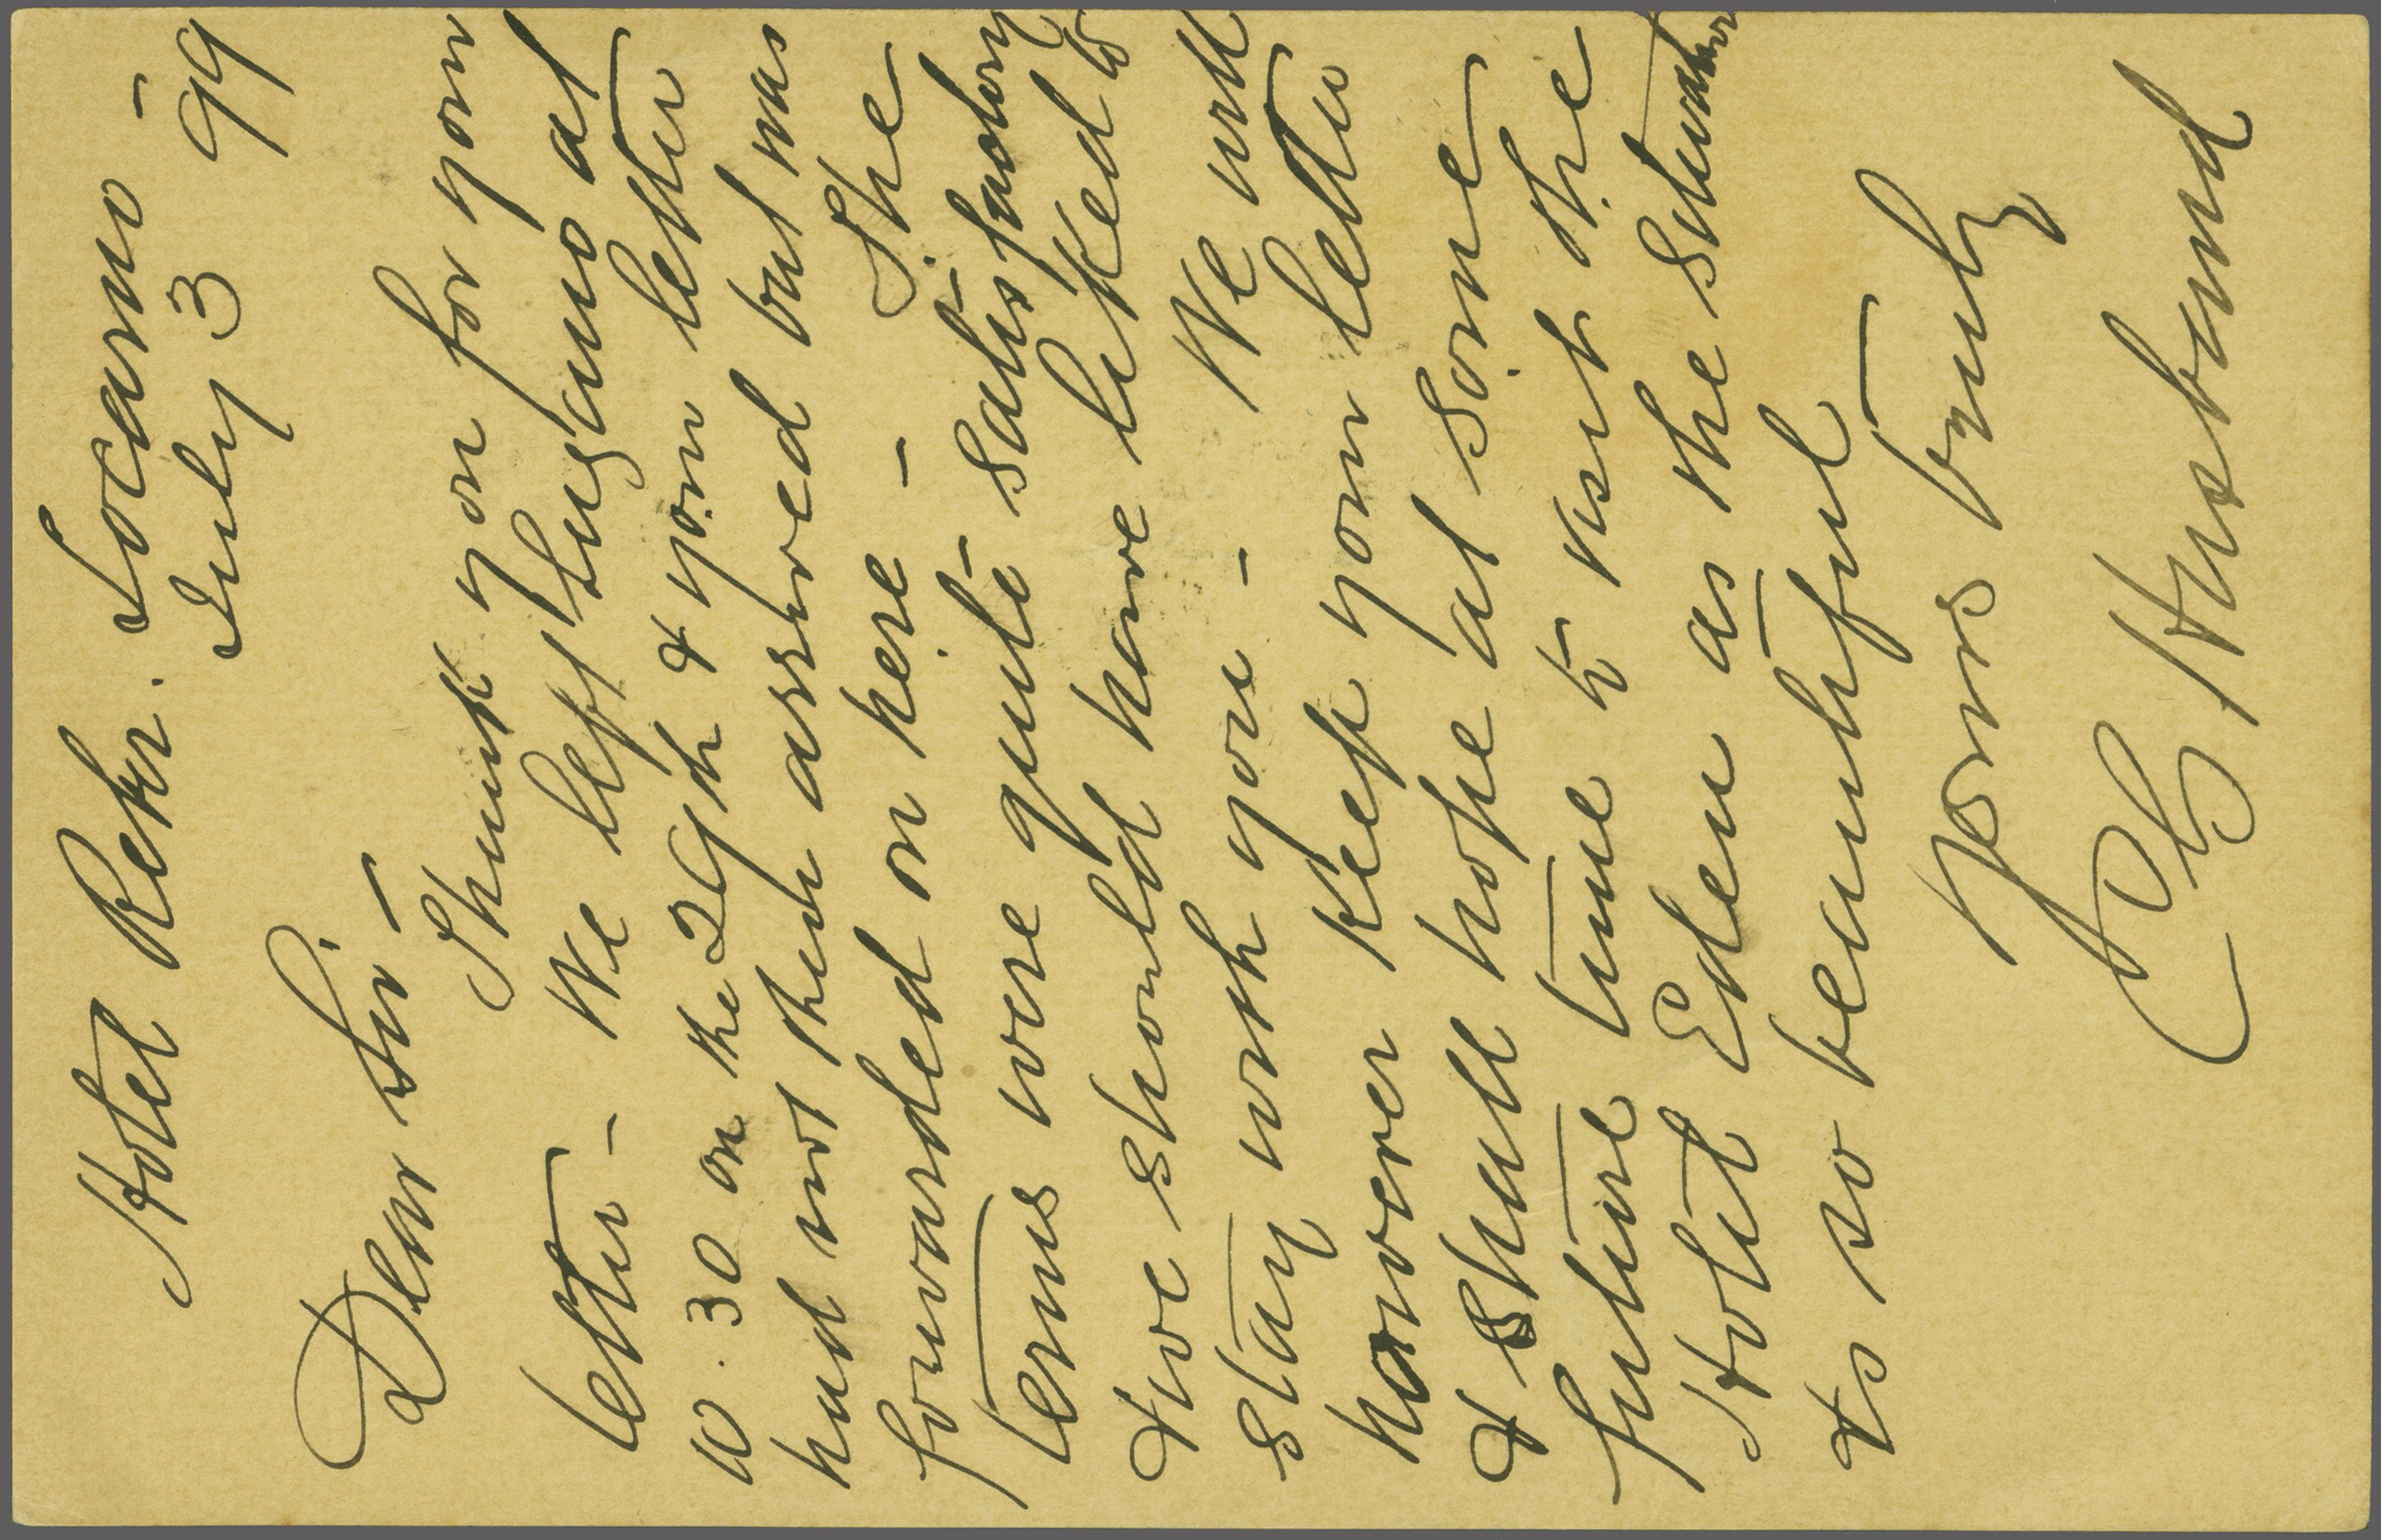 Hotel Reber. Locarno -
July 3 99
Dear Sir -
Thank you for your
letter - We left Lugano at
10.30 on the 29th & your letter
had not then arrived but was
forwarded on here - The
terms were quite satisfactory
& we should have liked to
stay with you - We will
however keep your letter
& shall hope at some
future time to visit the
Hotel Eden as the situation
is so beautiful
Yours truly
Husband